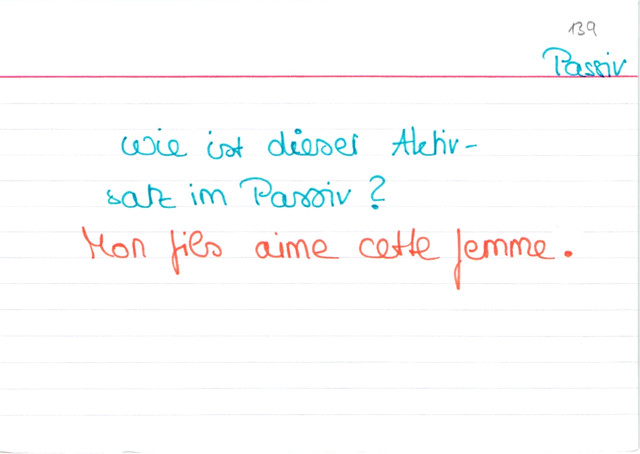 139
Passiv
Wie ist dieser Aktiv-
satz im Passiv?
Mon fils aime cette femme.